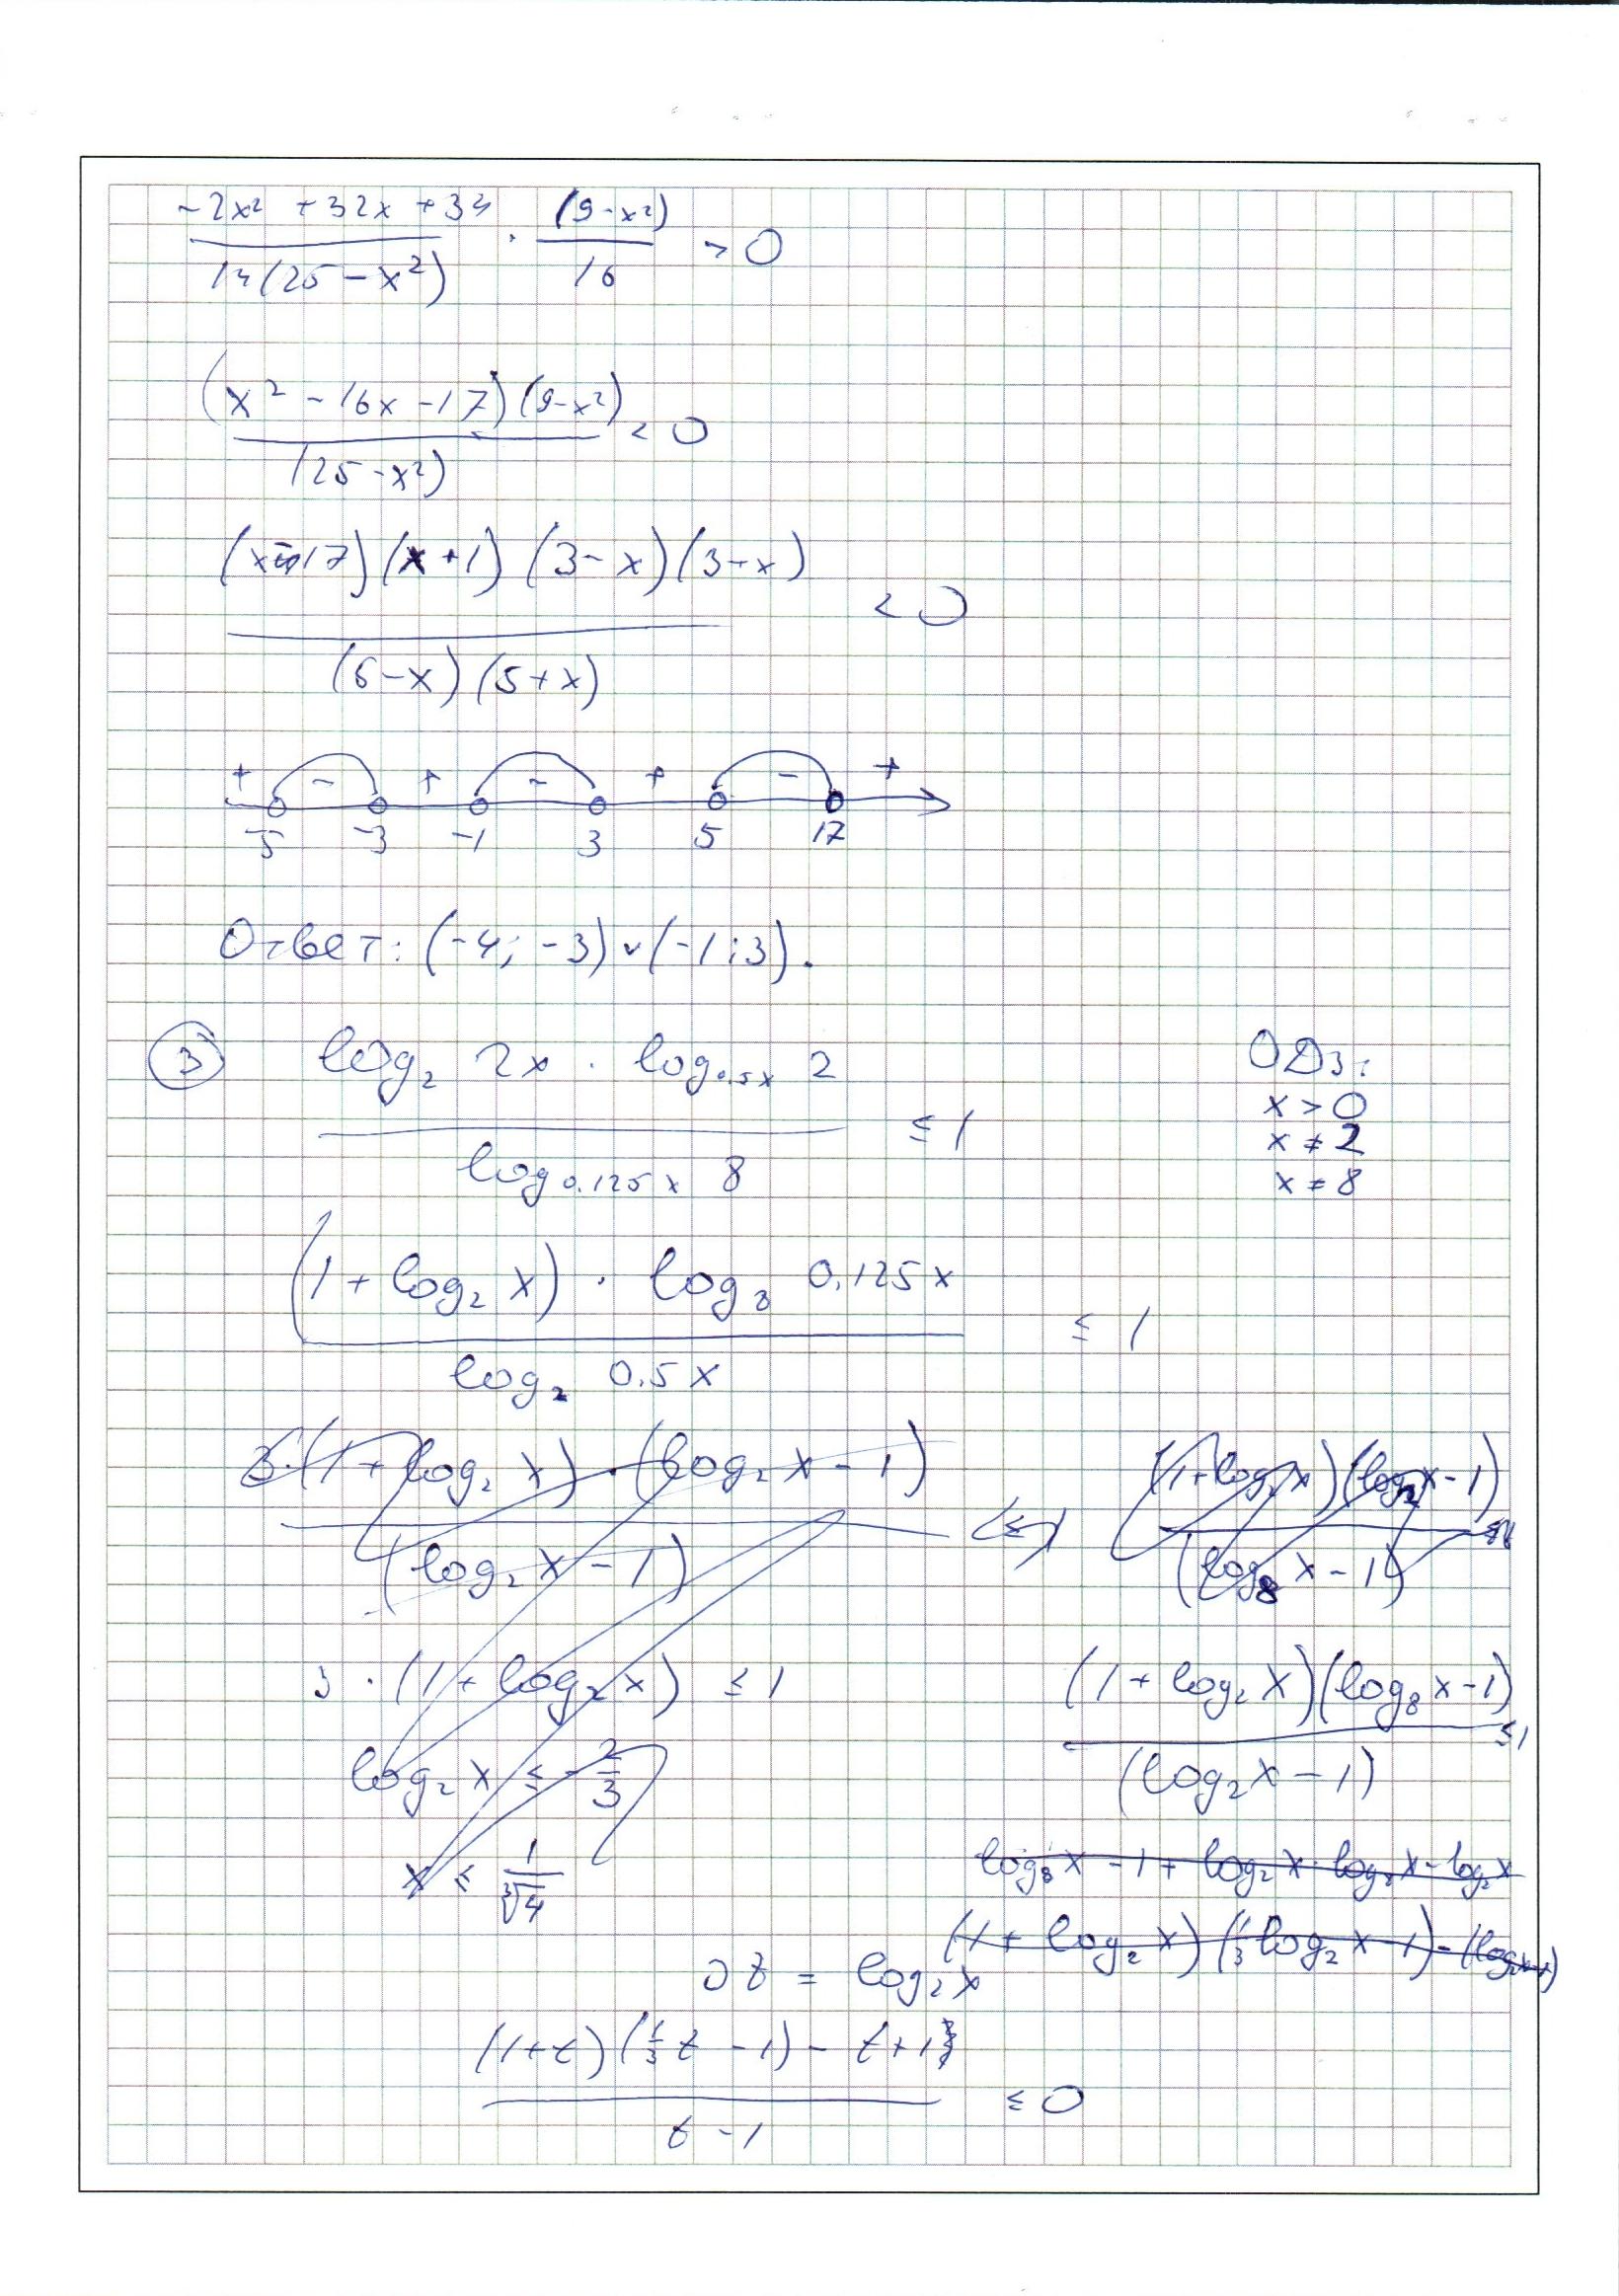 (-2x² + 32x + 34)/(14(25 - x²)) · (9 - x²)/16 > 0
(x² - 16x - 17)(9 - x²)/(25 - x²) < 0
(x - 17)(x + 1)(3 - x)(3 + x)/((5 - x)(5 + x)) < 0
+ - + - + - +
-5 -3 -1 3 5 17
Ответ: (-4; -3) ∪ (-1; 3).
③ log₂ 2x · log₀.₅ₓ 2 / log₀.₁₂₅ₓ 8 ≤ 1
ОДЗ:
x > 0
x ≠ 2
x ≠ 8
(1 + log₂ x) · log₈ 0.125x / log₂ 0.5x ≤ 1
3·(1 + log₂ x) · (log₂ x - 1)/(log₂ x - 1) ≤ 1
(1 + log₂ x)(log₂ x - 1)/(log₈ x - 1)
3 · (1 + log₂ x) ≤ 1
(1 + log₂ x)(log₈ x - 1)/(log₂ x - 1) ≤ 1
log₂ x ≤ -2/3
x ≤ 1/∛4
log₈ x - 1 + log₂ x · log₈ x - log₂ x
(1 + log₂ x)(1/3 log₂ x - 1) -
t = log₂ x
((1 + t)(1/3 t - 1) - t + 1)/(t - 1) ≤ 0